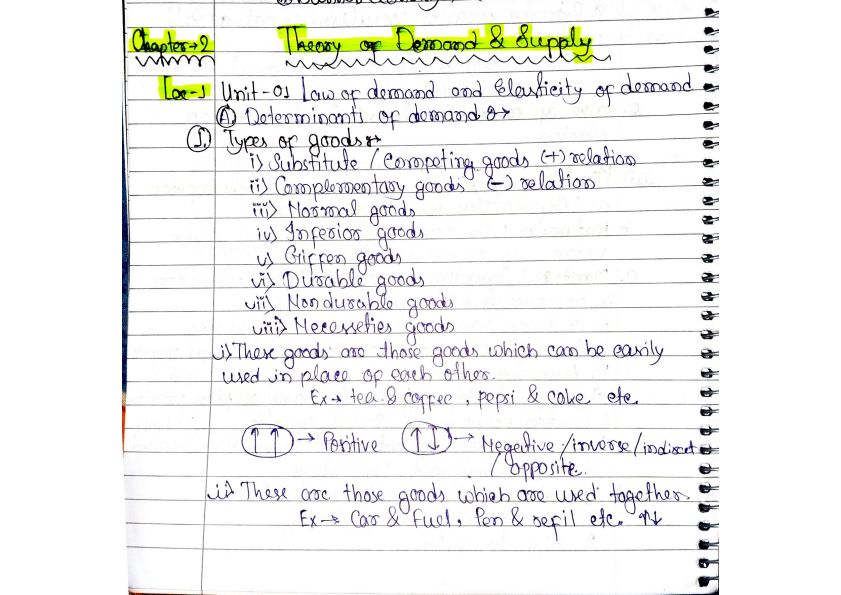 Chapter→2 Theory of Demand & Supply
Lec-1 Unit-01 Law of demand and Elasticity of demand
(A) Determinants of demand :→
(1.) Types of goods :→
i) Substitute / Competing goods (+) relation
ii) Complementary goods (-) relation
iii) Normal goods
iv) Inferior goods
v) Giffen goods
vi) Durable goods
vii) Nondurable goods
viii) Necesseties goods
i) These goods are those goods which can be easily
used in place of each other.
Ex→ tea & coffee, pepsi & coke etc.
↑↑ → Positive ↑↓ → Negative / inverse / indirect
/ opposite.
ii) These are those goods which are used together.
Ex→ Car & Fuel, Pen & refil etc. ↑↓